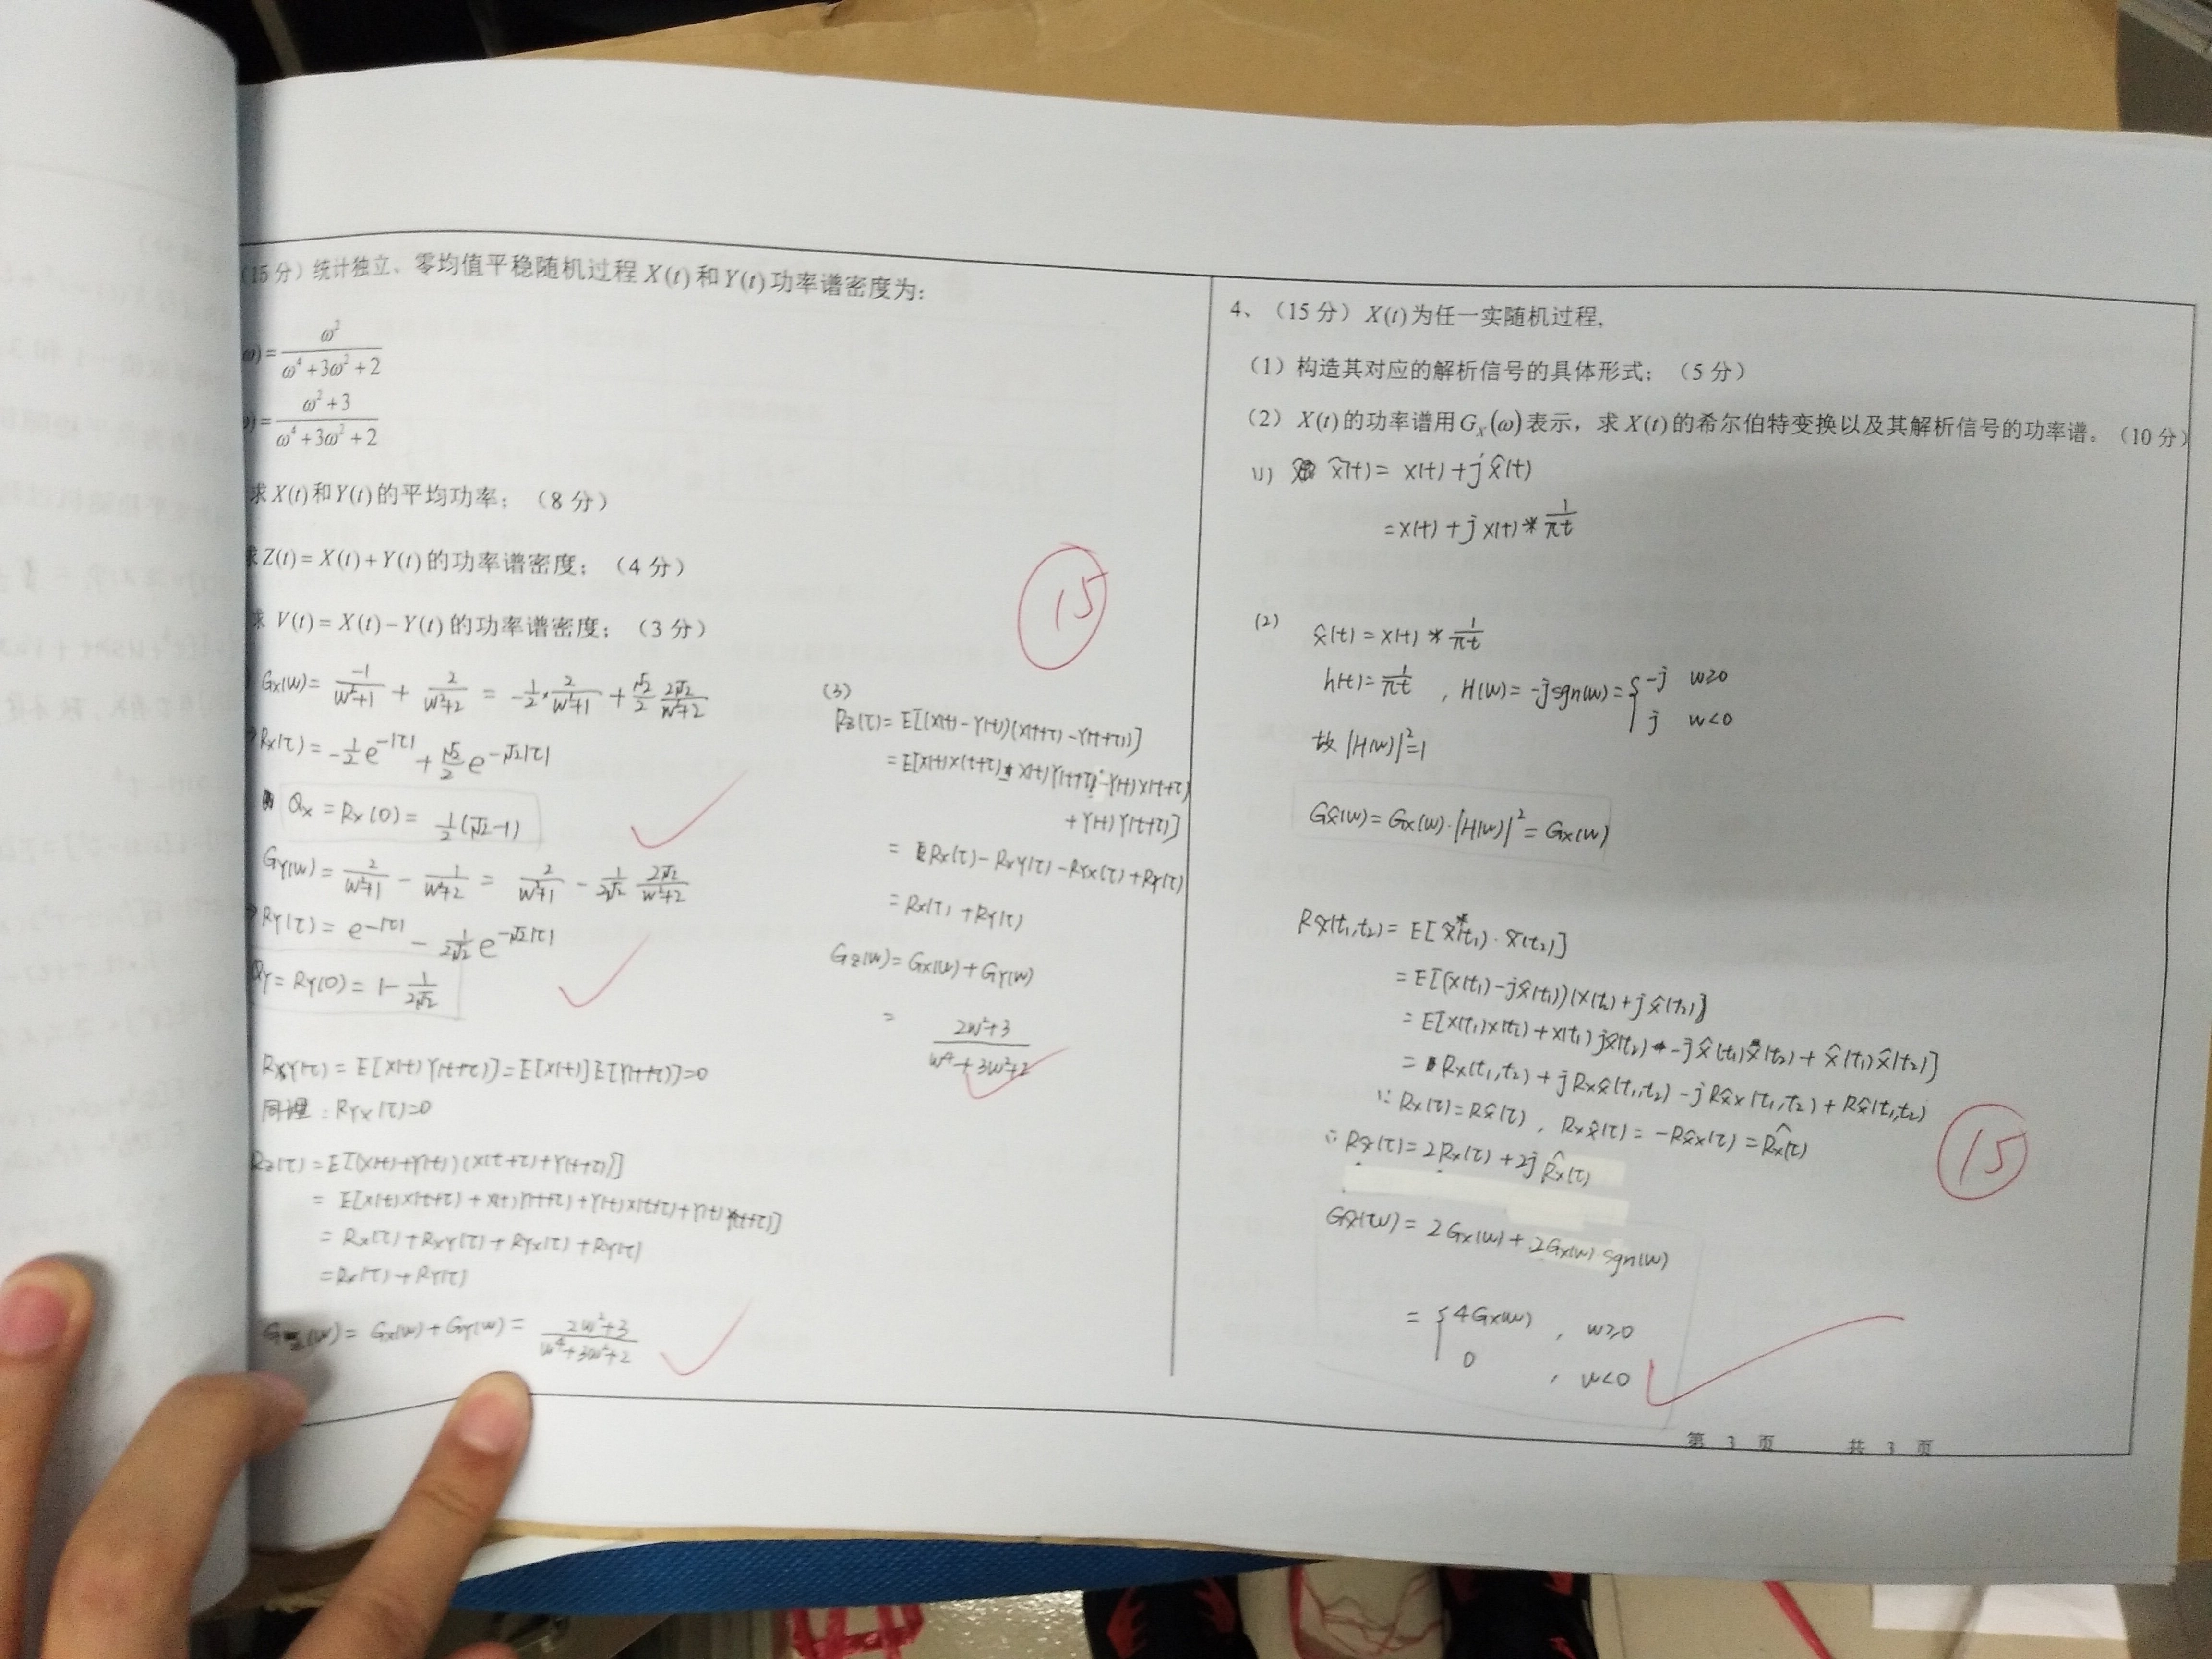 (15分) 统计独立、零均值平稳随机过程 X(t) 和 Y(t) 功率谱密度为:
ω) = ω² / (ω⁴+3ω²+2)
) = (ω²+3) / (ω⁴+3ω²+2)
求 X(t) 和 Y(t) 的平均功率; (8分)
求 Z(t) = X(t)+Y(t) 的功率谱密度; (4分)
求 V(t) = X(t)−Y(t) 的功率谱密度; (3分)
15
Gx(w) = -1/(w²+1) + 2/(w²+2) = -1/2 · 2/(w²+1) + √2/2 · 2√2/(w²+2)
Rx(τ) = -1/2 e^(-|τ|) + √2/2 e^(-√2|τ|)
Qx = Rx(0) = 1/2(√2-1)
GY(w) = 2/(w²+1) - 1/(w²+2) = 2/(w²+1) - 1/(2√2) · 2√2/(w²+2)
RY(τ) = e^(-|τ|) - 1/(2√2) e^(-√2|τ|)
QY = RY(0) = 1 - 1/(2√2)
RXY(τ) = E[X(t)Y(t+τ)] = E[X(t)]E[Y(t+τ)] = 0
同理: RYX(τ)=0
Rz(τ) = E[(X(t)+Y(t))(X(t+τ)+Y(t+τ))]
= E[X(t)X(t+τ) + X(t)Y(t+τ) + Y(t)X(t+τ) + Y(t)Y(t+τ)]
= Rx(τ)+RXY(τ)+RYX(τ)+RY(τ)
= Rx(τ)+RY(τ)
Gz(w) = Gx(w)+GY(w) = (2w²+3)/(w⁴+3w²+2)
(3)
Rz(τ) = E[(X(t)-Y(t))(X(t+τ)-Y(t+τ))]
= E[X(t)X(t+τ) - X(t)Y(t+τ) - Y(t)X(t+τ)
+ Y(t)Y(t+τ)]
= Rx(τ) - RXY(τ) - RYX(τ) + RY(τ)
= Rx(τ) + RY(τ)
Gz(w) = Gx(w) + GY(w)
= (2w²+3)/(w⁴+3w²+2)
4、(15分) X(t) 为任一实随机过程,
(1) 构造其对应的解析信号的具体形式; (5分)
(2) X(t) 的功率谱用 G_X(ω) 表示, 求 X(t) 的希尔伯特变换以及其解析信号的功率谱。(10分)
(1) x̃(t) = x(t) + jx̂(t)
= x(t) + jx(t) * 1/(πt)
(2) x̂(t) = x(t) * 1/(πt)
h(t) = 1/(πt) , H(w) = -jsgn(w) = { -j w≥0
j w<0
故 |H(w)|²=1
Gx̂(w) = Gx(w)·|H(w)|² = Gx(w)
Rx̃(t₁,t₂) = E[x̃*(t₁)·x̃(t₂)]
= E[(x(t₁)-jx̂(t₁))(x(t₂)+jx̂(t₂)]
= E[x(t₁)x(t₂) + x(t₁)jx̂(t₂) - jx̂(t₁)x(t₂) + x̂(t₁)x̂(t₂)]
= Rx(t₁,t₂) + jRxx̂(t₁,t₂) - jRx̂x(t₁,t₂) + Rx̂(t₁,t₂)
∵ Rx(τ) = Rx̂(τ) , Rxx̂(τ) = -Rx̂x(τ) = R̂x(τ)
∴ Rx̃(τ) = 2Rx(τ) + 2jR̂x(τ)
15
Gx̃(w) = 2Gx(w) + 2Gx(w) sgn(w)
= { 4Gx(w) , w≥0
0 , w<0
第 3 页 共 3 页